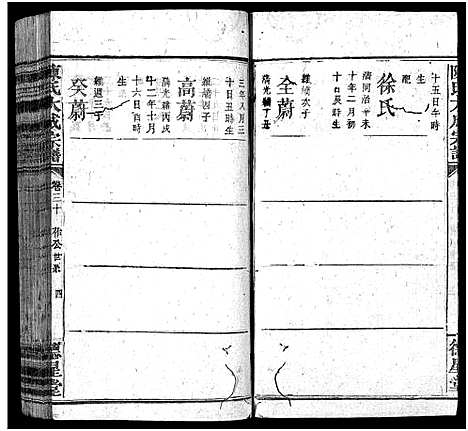 陳氏大成宗譜
十五日午時
生
配
徐氏
清同治辛未
十年二月初
十日辰時生
全蔚
維緒次子
清光緒丁丑
德星堂
三年八月三
十日丑時生
高蔚
維緒四子
清光緒丙戌
十二年十月
十六日酉時
生
癸蔚
維週三子
陳氏大成宗譜
卷三十
公世系
四
德星堂